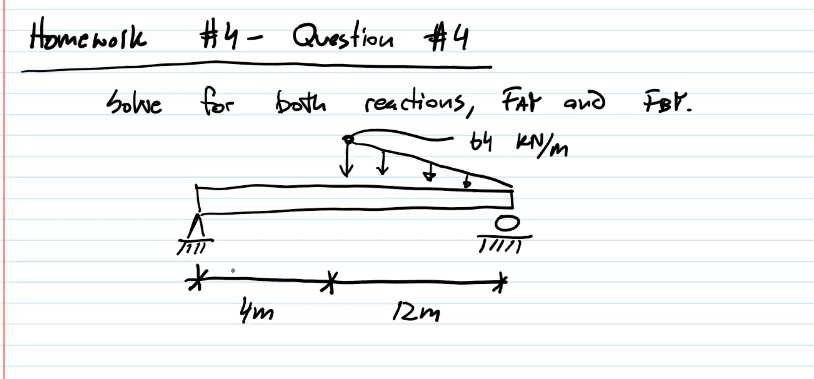 Homework #4 - Question #4
Solve for both reactions, FAY and FBY.
64 KN/m
4m 12m